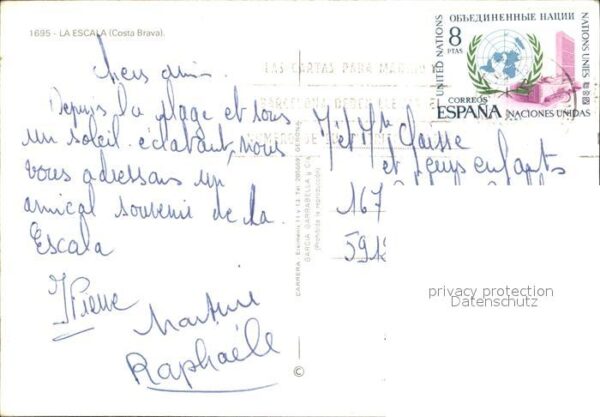 1695 - LA ESCALA (Costa Brava).
Chers amis.
Depuis la plage et sous
un soleil éclatant, nous
vous adressons un
amical souvenir de La
Escala
JPierre
Martine
Raphaële
CARRERA - 
GARCIA GARRABELLA y C.ª
(Prohibida la reproducción)
©
UNITED NATIONS
ОБЪЕДИНЕННЫЕ НАЦИИ
NATIONS UNIES
8
PTAS
CORREOS
ESPAÑA
NACIONES UNIDAS
LAS CARTAS PARA MADRID Y
BARCELONA DEBEN LLEVAR EL
NUMERO DE
M et Mme
et leurs enfants
167
591
privacy protection
Datenschutz